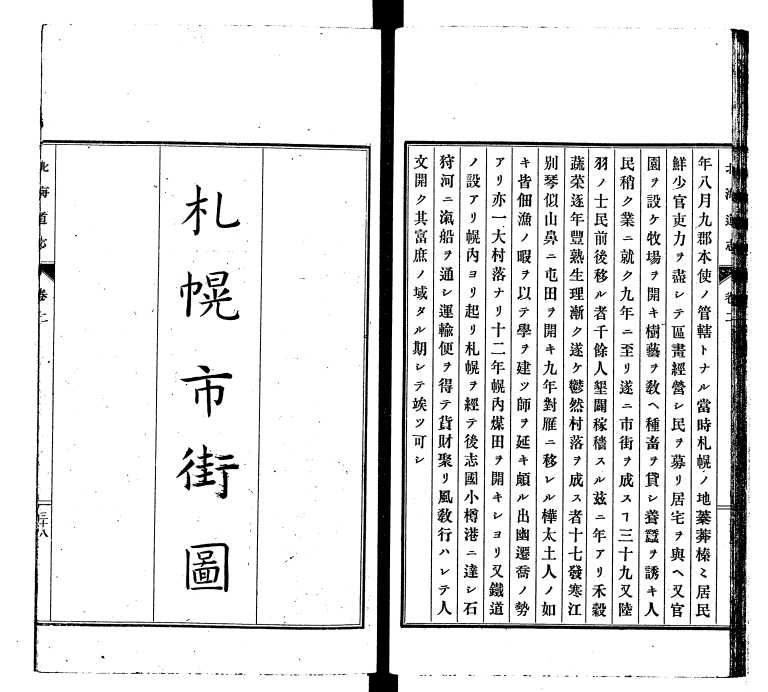 北海道志 卷二
年八月九郡本使ノ管轄トナル當時札幌ノ地蓁莽榛々居民
鮮少官吏力ヲ盡シテ區畫經營シ民ヲ募リ居宅ヲ與ヘ又官
園ヲ設ケ牧場ヲ開キ樹藝ヲ敎ヘ種畜ヲ貸シ養蠶ヲ誘キ人
民稍ク業ニ就ク九年ニ至リ遂ニ市街ヲ成スヿ三十九又陸
羽ノ士民前後移ル者千餘人墾闢稼穡スル玆ニ年アリ禾穀
蔬菜逐年豐熟生理漸ク遂ケ鬱然村落ヲ成ス者十七發寒江
別琴似山鼻ニ屯田ヲ開キ九年對雁ニ移レル樺太土人ノ如
キ皆佃漁ノ暇ヲ以テ學ヲ建ツ師ヲ延キ頗ル出幽遷喬ノ勢
アリ亦一大村落ナリ十二年幌內煤田ヲ開キシヨリ又鐵道
ノ設アリ幌內ヨリ起リ札幌ヲ經テ後志國小樽港ニ達シ石
狩河ニ滊船ヲ通シ運輸便ヲ得テ貨財聚リ風敎行ハレテ人
文開ク其富庶ノ域タル期シテ竢ツ可シ
札幌市街圖
北海道志 卷二 三十八